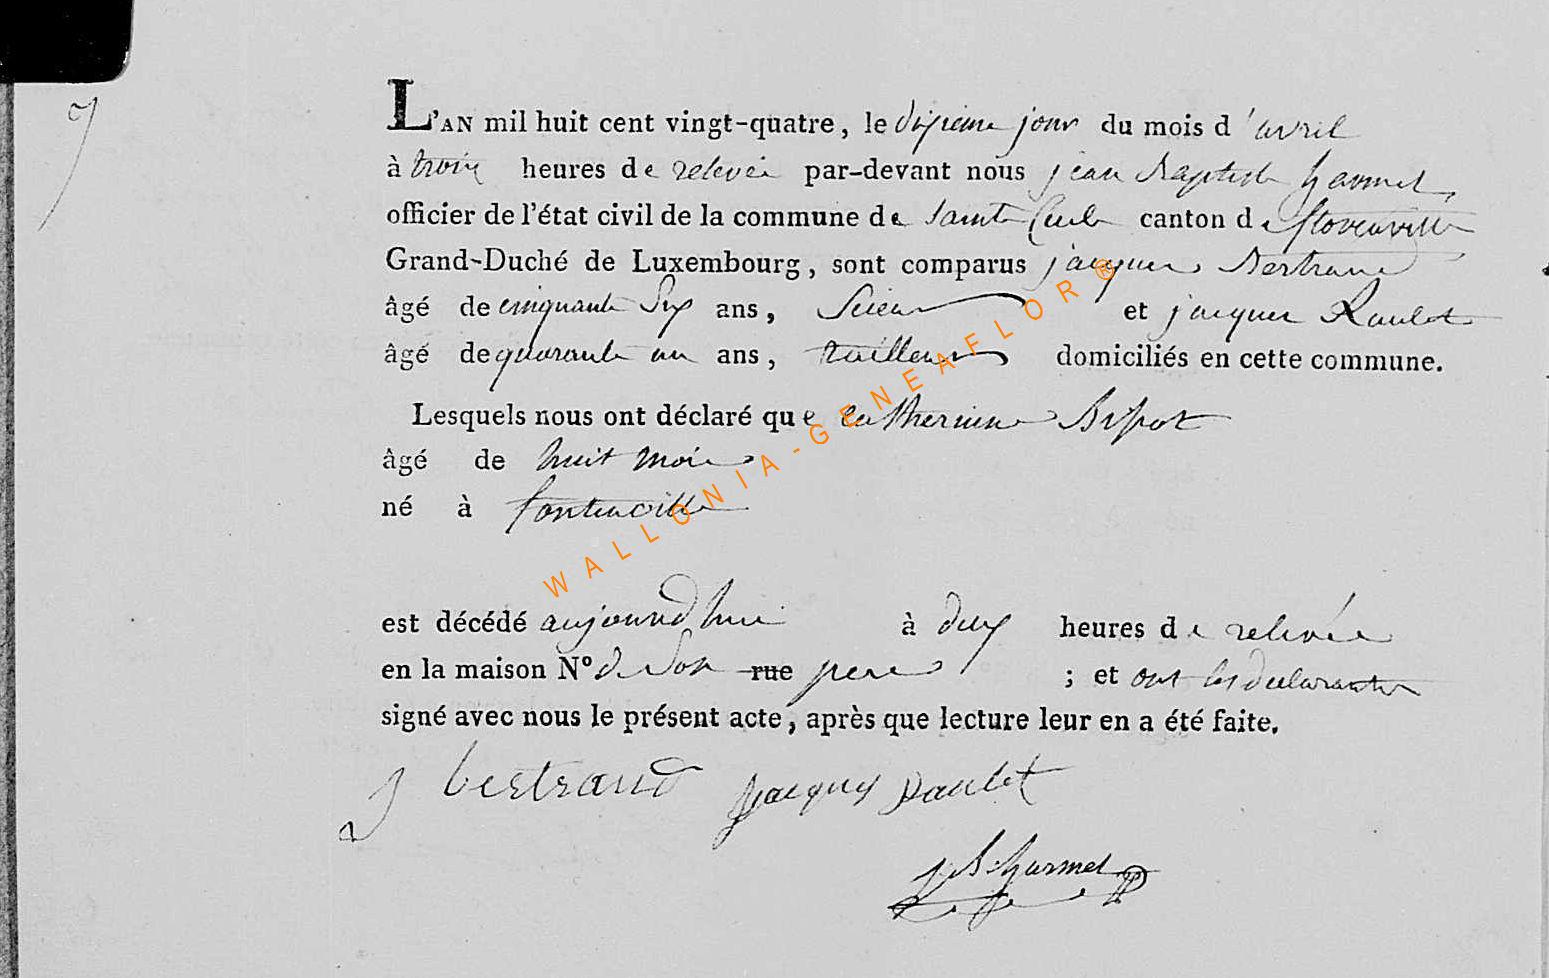 7
L'AN mil huit cent vingt-quatre, le dixieme jour du mois d'avril
à trois heures de relevée par-devant nous jean Baptiste harmel
officier de l'état civil de la commune de Sainte Cecile canton de florenville
Grand-Duché de Luxembourg, sont comparus jacques Bertrand
âgé de cinquante Six ans, Scieur et jacques Raulet
âgé de quarante un ans, tailleur domiciliés en cette commune.
Lesquels nous ont déclaré que catherinne
âgé de huit mois
né à fontenoille
est décédé aujourd'hui à deux heures de relevée
en la maison N° de Son rue pere ; et ont les declarants
signé avec nous le présent acte, après que lecture leur en a été faite.
J bertrand jacques Raulet
J B harmel
WALLONIA-GENEAFLOR®